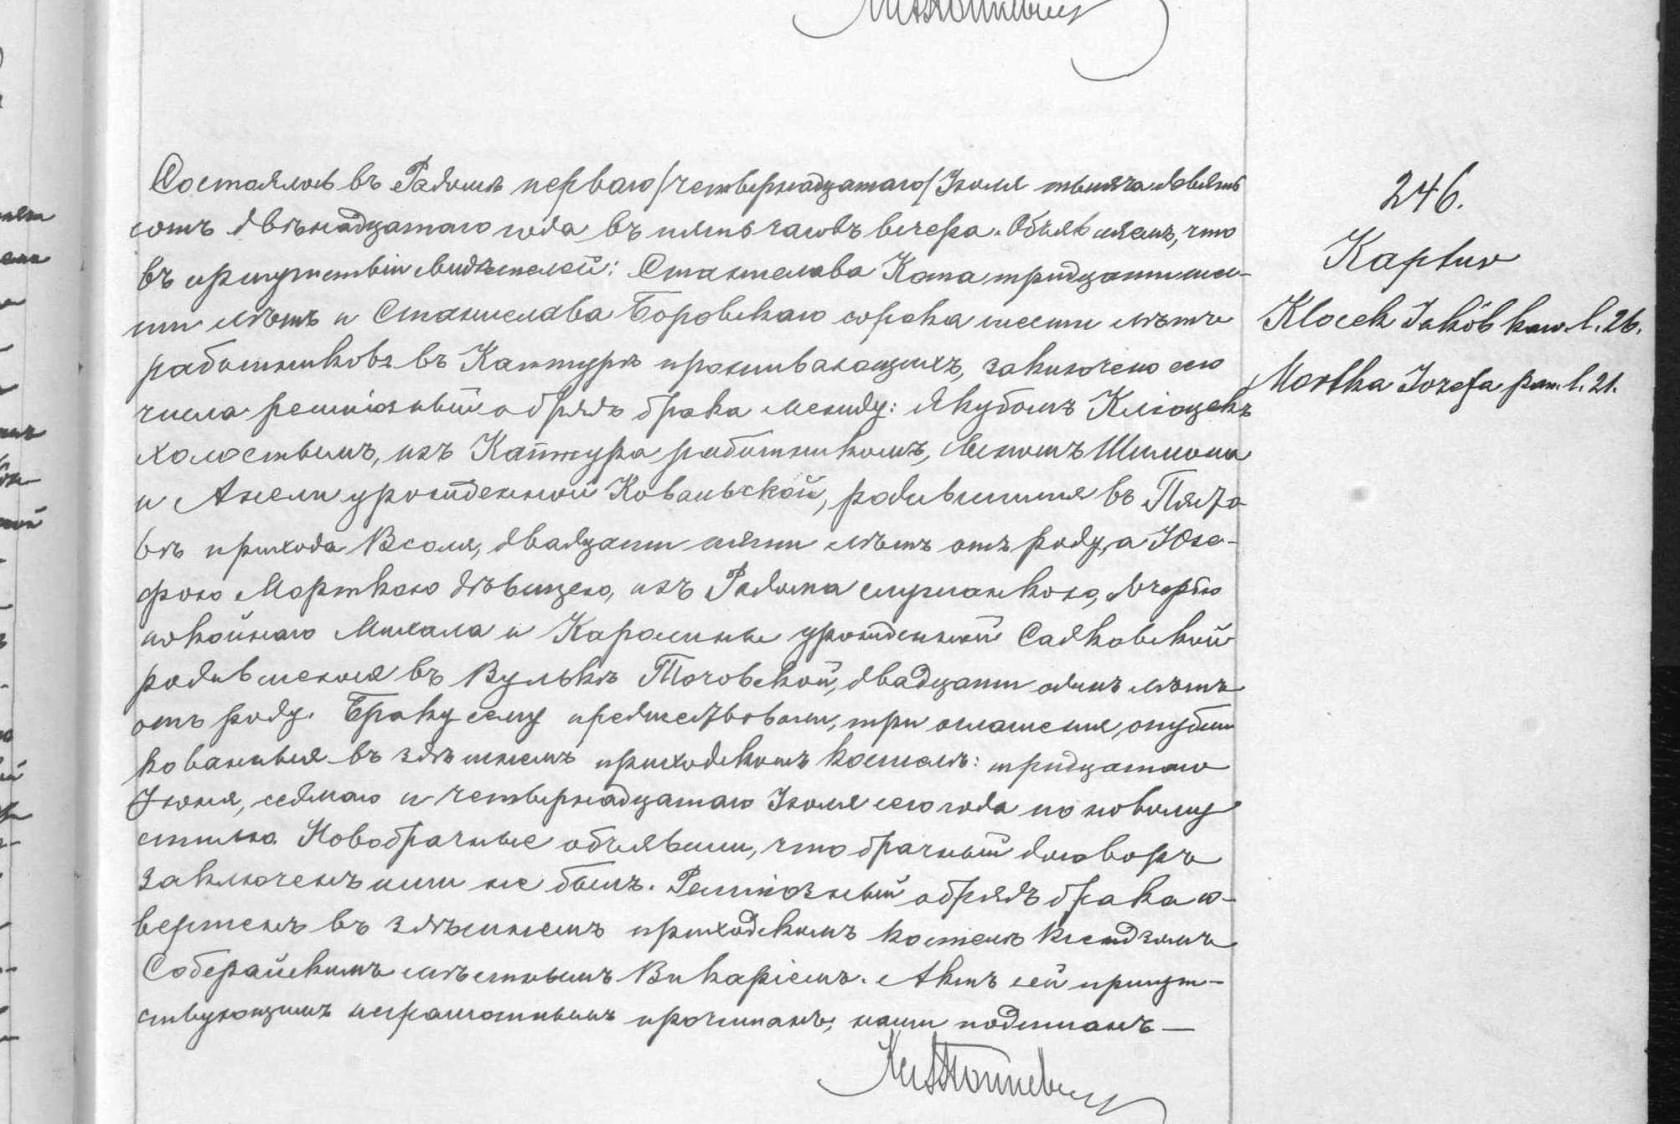 Состоялось въ Радомѣ перваго/четвернадцатаго/Іюля тысяча девять
сотъ двѣнадцатаго года въ пять часовъ вечера. Объявляемъ, что
въ присутствіи свидѣтелей: Станислава Копа тридцати ше-
сти лѣтъ и Станислава Боровскаго сорока шести лѣтъ
работниковъ въ Каптурѣ проживающихъ, заключено сего
числа религіозный обрядъ брака между: Якубомъ Клоцекъ
холостымъ, изъ Каптура работникомъ, сыномъ Шимона
и Анели урожденной Ковальской, родившимся въ
вѣ прихода Всоля, двадцати шести лѣтъ отъ роду, а Юзе-
фоюМорткою дѣвицею, изъ Радома служанкою, дочерью
покойнаго Михала и Каролины урожденной Садковской
родившеюся въ Вулькѣ Точовской, двадцати одинъ лѣтъ
отъ роду. Браку сему предшествовали три оглашения, опубли
кованныя въ здѣшнемъ приходскомъ костелѣ: тридцатаго
Іюня, седьмаго и четвернадцатаго Іюля сего года по новому
стилю. Новобрачные объявили, что брачный договоръ
заключенъ ими не былъ. Религіозный обрядъ брака со-
вершенъ въ здѣшнемъ приходскомъ костелѣ Ксендзомъ
Соберайскимъ мѣстнымъ Викаріемъ. Актъ сей присут-
ствующимъ неграмотнымъ прочитанъ, нами подписанъ —
246.
Kaptur
Klocek Jakób kaw. l. 26.
Mortka Józefa pan. l. 21.